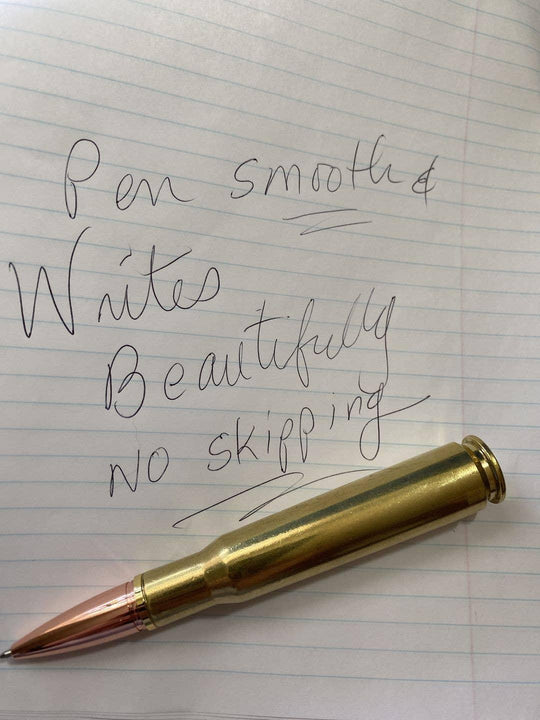 Pen smooth &
Writes
Beautifully
NO skipping